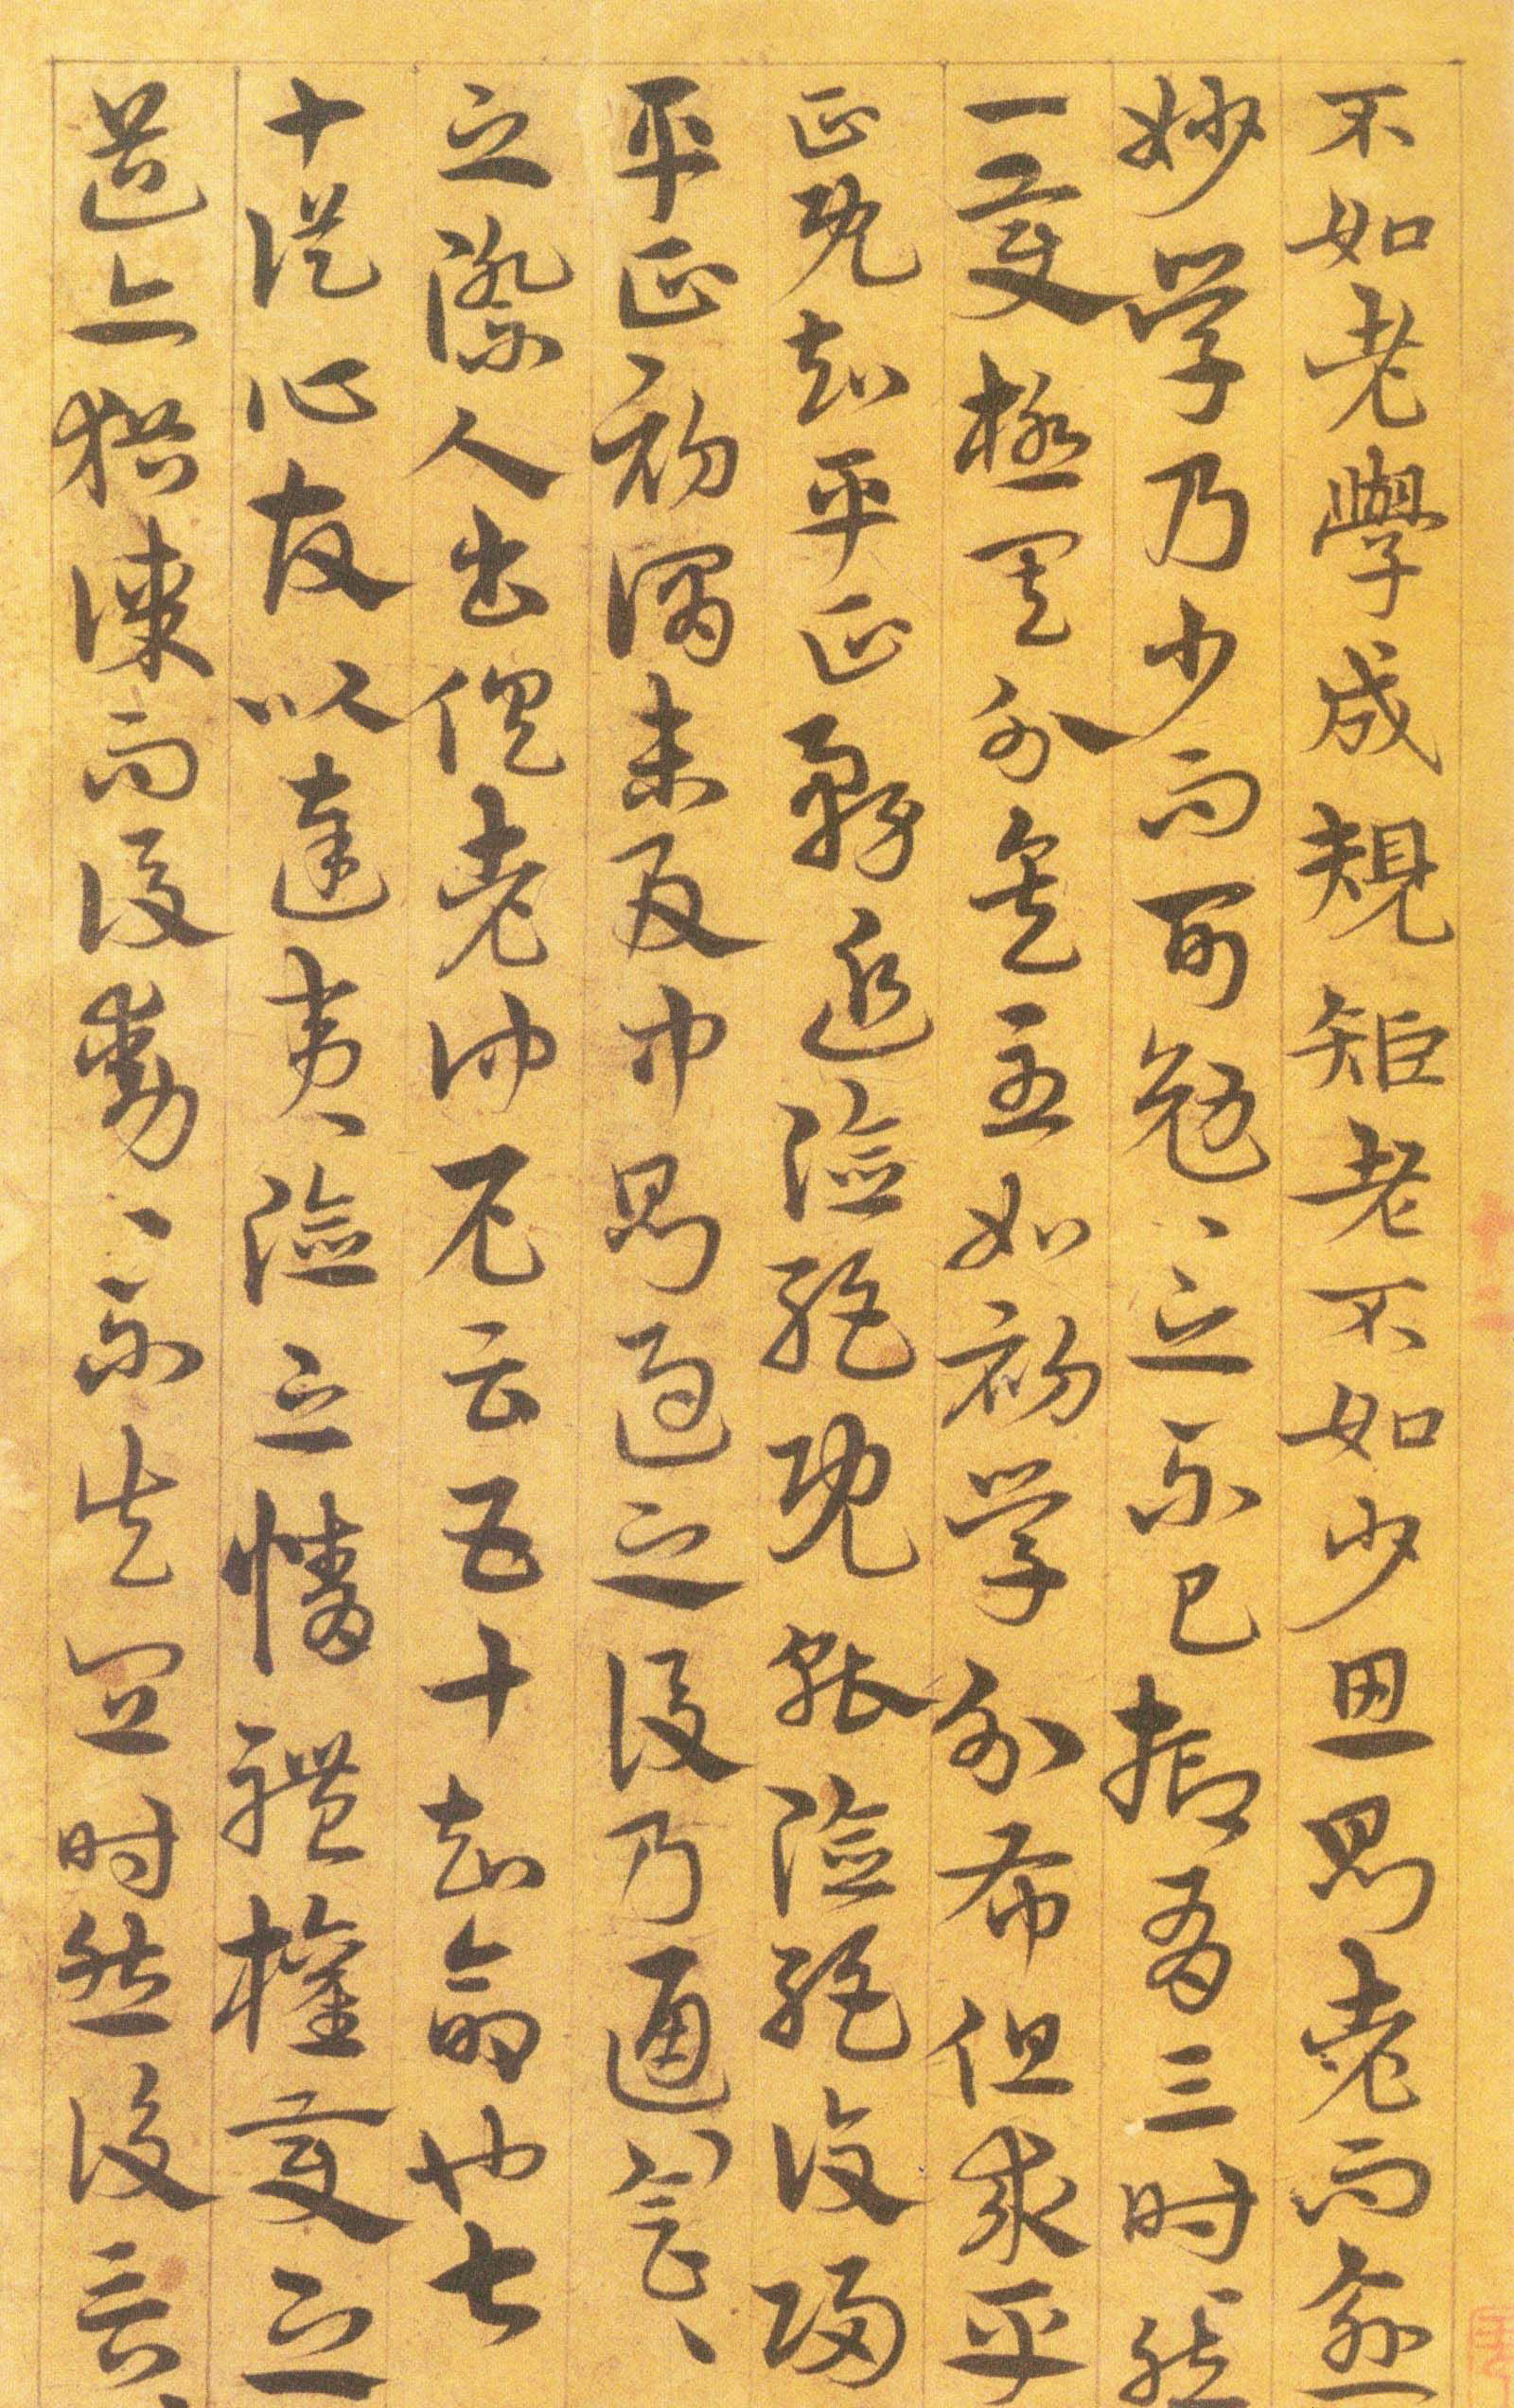 不如老學成規矩老不如少思則老而逾
妙學乃少而可勉〻之不已抑有三時然
一變極其分矣至如初學分布但求平
正既知平正務追險絕既能險絕復歸
平正初謂未及中則過之後乃通會〻
之際人書俱老仲尼云五十知命也七
十從心故以達夷〻險之情體權變之
道亦猶謀而後動〻不失宜時然後言〻